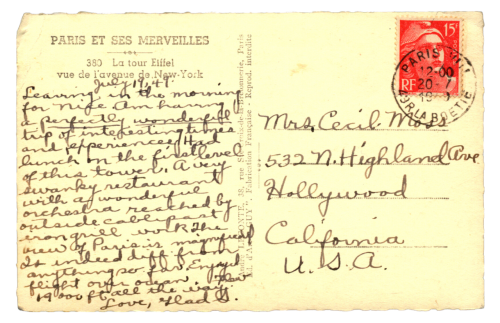 PARIS ET SES MERVEILLES
380 La tour Eiffel
vue de l'avenue de New-York
July 19, 49
Leaving in the morning
for Nice. Am having
a perfectly wonderful
trip of interesting times
and experiences. Had
lunch on the first level
of this tower. A very
swanky restaurant
with a wonderful
orchestra reached by
outside cable past
iron grill work. The
view of Paris is magnificent
It is indeed diff. from
anything so far. Enjoyed
flight over ocean. flew
19,000 ft all the way.
Love, Glad S.
15F
RF
PARIS VIII
12-00
20-7
R. LA BOETIE
Mrs. Cecil Moss
532 N. Highland Ave
Hollywood
California
U.S.A.